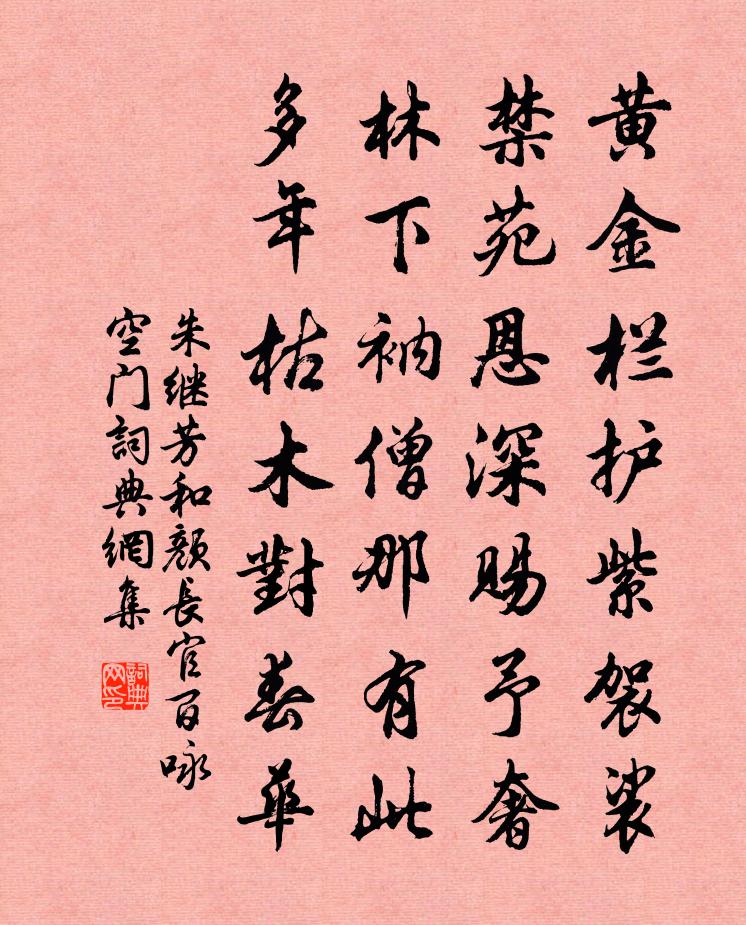 黄金栏护紫袈裟
禁苑恩深赐予奢
林下衲僧那有此
多年枯木對春華
朱继芳和颜長官百咏
空门詞典網集
詞典网印